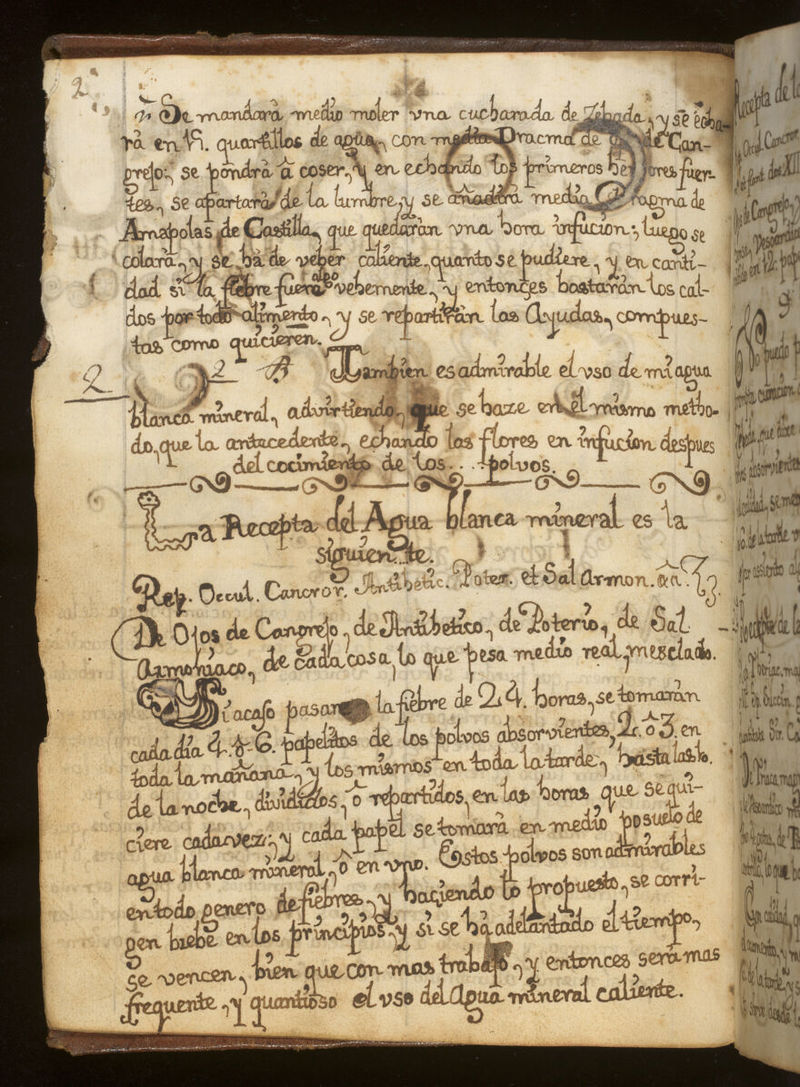 2
Se mandarà medio moler vna cucharada de Zebada, y se echa-
rà en quartillos de agua, con media Dracma de de Can-
grejo; se pondrà à coser, y en echando los primeros herbores fuer-
tes, se apartarà de la lumbre, y se añadirà media Dragma de
Amapolas de Castilla, que quedaràn vna hora infucion; luego se
colarà, y se hà de veber caliente, quanto se pudiere, y en canti-
dad si la fiebre fuera algo vehemente, y entonçes bastaràn los cal-
dos por todo alimento, y se repartiràn las Ayudas, compues-
tas como quicieren.
2 2 Tambien es admirable el vso de mi agua
blanca mineral, advirtiendo, que se haze en el mismo metho-
do, que la antecedente, echando las flores en infucion despues
del cocimiento de los... polvos.
La Recepta del Agua blanca mineral es la
siguiente.
Rep. Occul. Cancror. Antihetic. Poter. et Sal Armon. ãa
De Ojos de Cangrejo, de Antihetico, de Poterio, de Sal
Armoniaco, de cada cosa, lo que pesa medio real, mesclado.
Si acaso pasare la fiebre de 24. horas, se tomaràn
cada dia 4. ò 6. papelitos de los polvos absorvientes, 2. ò 3. en
toda la mañana, y los mismos en toda la tarde, hasta las
de la noche, divididos, ò repartidos, en las horas que se qui-
ciere cada vez; y cada papel se tomarà en medio posuelo de
agua blanca mineral, ò en vno. Estos polvos son admirables
en todo genero de fiebres, y haçiendo lo propuesto, se corri-
gen brebe en los principios, y si se hà adelantado el tiempo,
se vencen, bien que con mas trabajo, y entonces serà mas
frequente, y quantioso el vso del Agua mineral caliente.